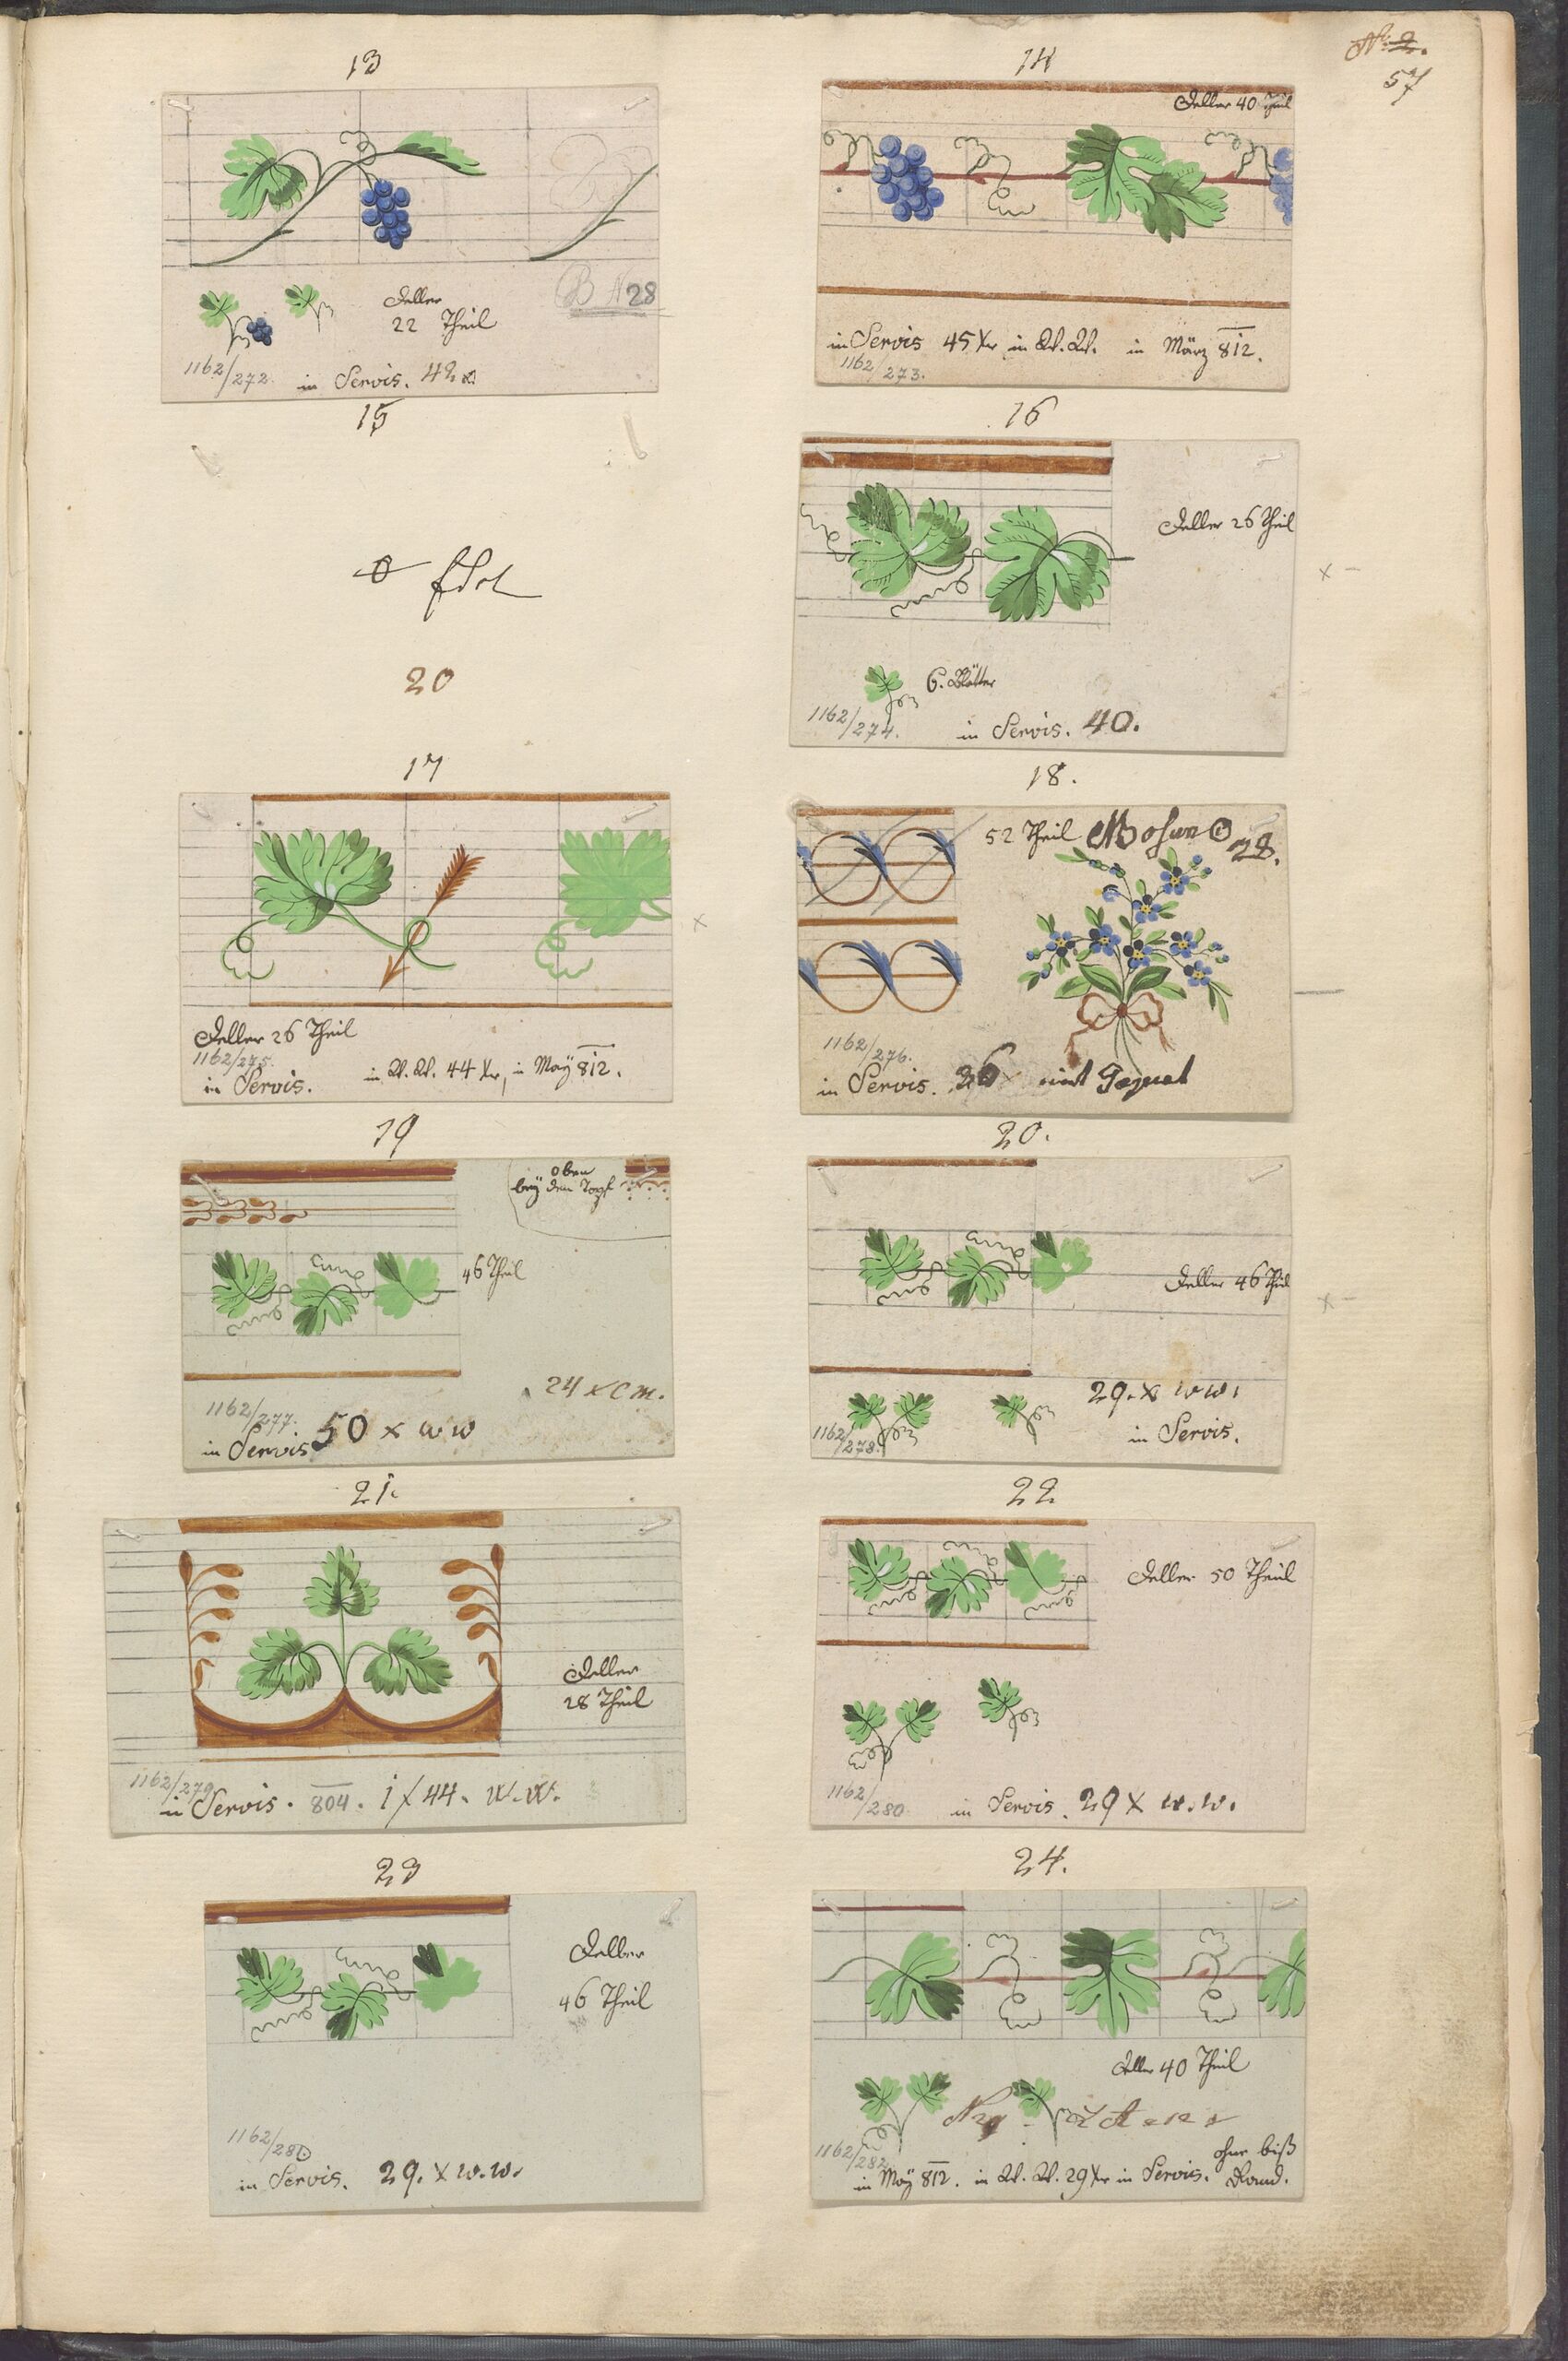 No. 2.
57
13
Teller
22 Theil
B N 28
1162/272.
in Servis. 42 x
14
Teller 40 Theil
in Servis 45 Xr in W. W. in März 812.
1162/273.
15
fehlt
20
16
Teller 26 Theil
6. Blätter
1162/274.
in Servis. 40.
17
Teller 26 Theil
1162/275.
in Servis. in W. W. 44 Xr, in Maÿ 812.
18.
52 Theil
28.
1162/276.
in Servis. 36 x mit
19
oben
beÿ dem Topf
46 Theil
24 x C M.
1162/277.
in Servis 50 x w w
20.
Teller 46 Theil
29. x w w.
1162/278.
in Servis.
21.
Teller
28 Theil
1162/279
in Servis. 804. i f 44. W. W.
22
Teller 50 Theil
1162/280.
in Servis. 29 X w. w.
23
Teller
46 Theil
1162/281
in Servis. 29. X w. w.
24.
Teller 40 Theil
1162/282
ohne
in Maÿ 812. in W. W. 29 Xr in Servis. Rand.